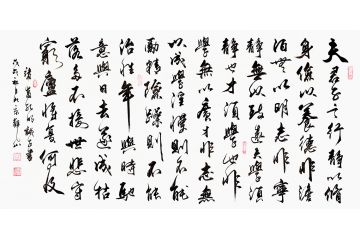 夫君子之行静以修
身儉以養德非澹
泊無以明志非寧
静無以致遠夫學須
静也才須學也非
學無以廣才非志無
以成學淫慢則不能
勵精險躁則不能
治性年與時馳
意與日去遂成枯
落多不接世悲守
窮廬將復何及
諸葛亮的誡子書
戊戌